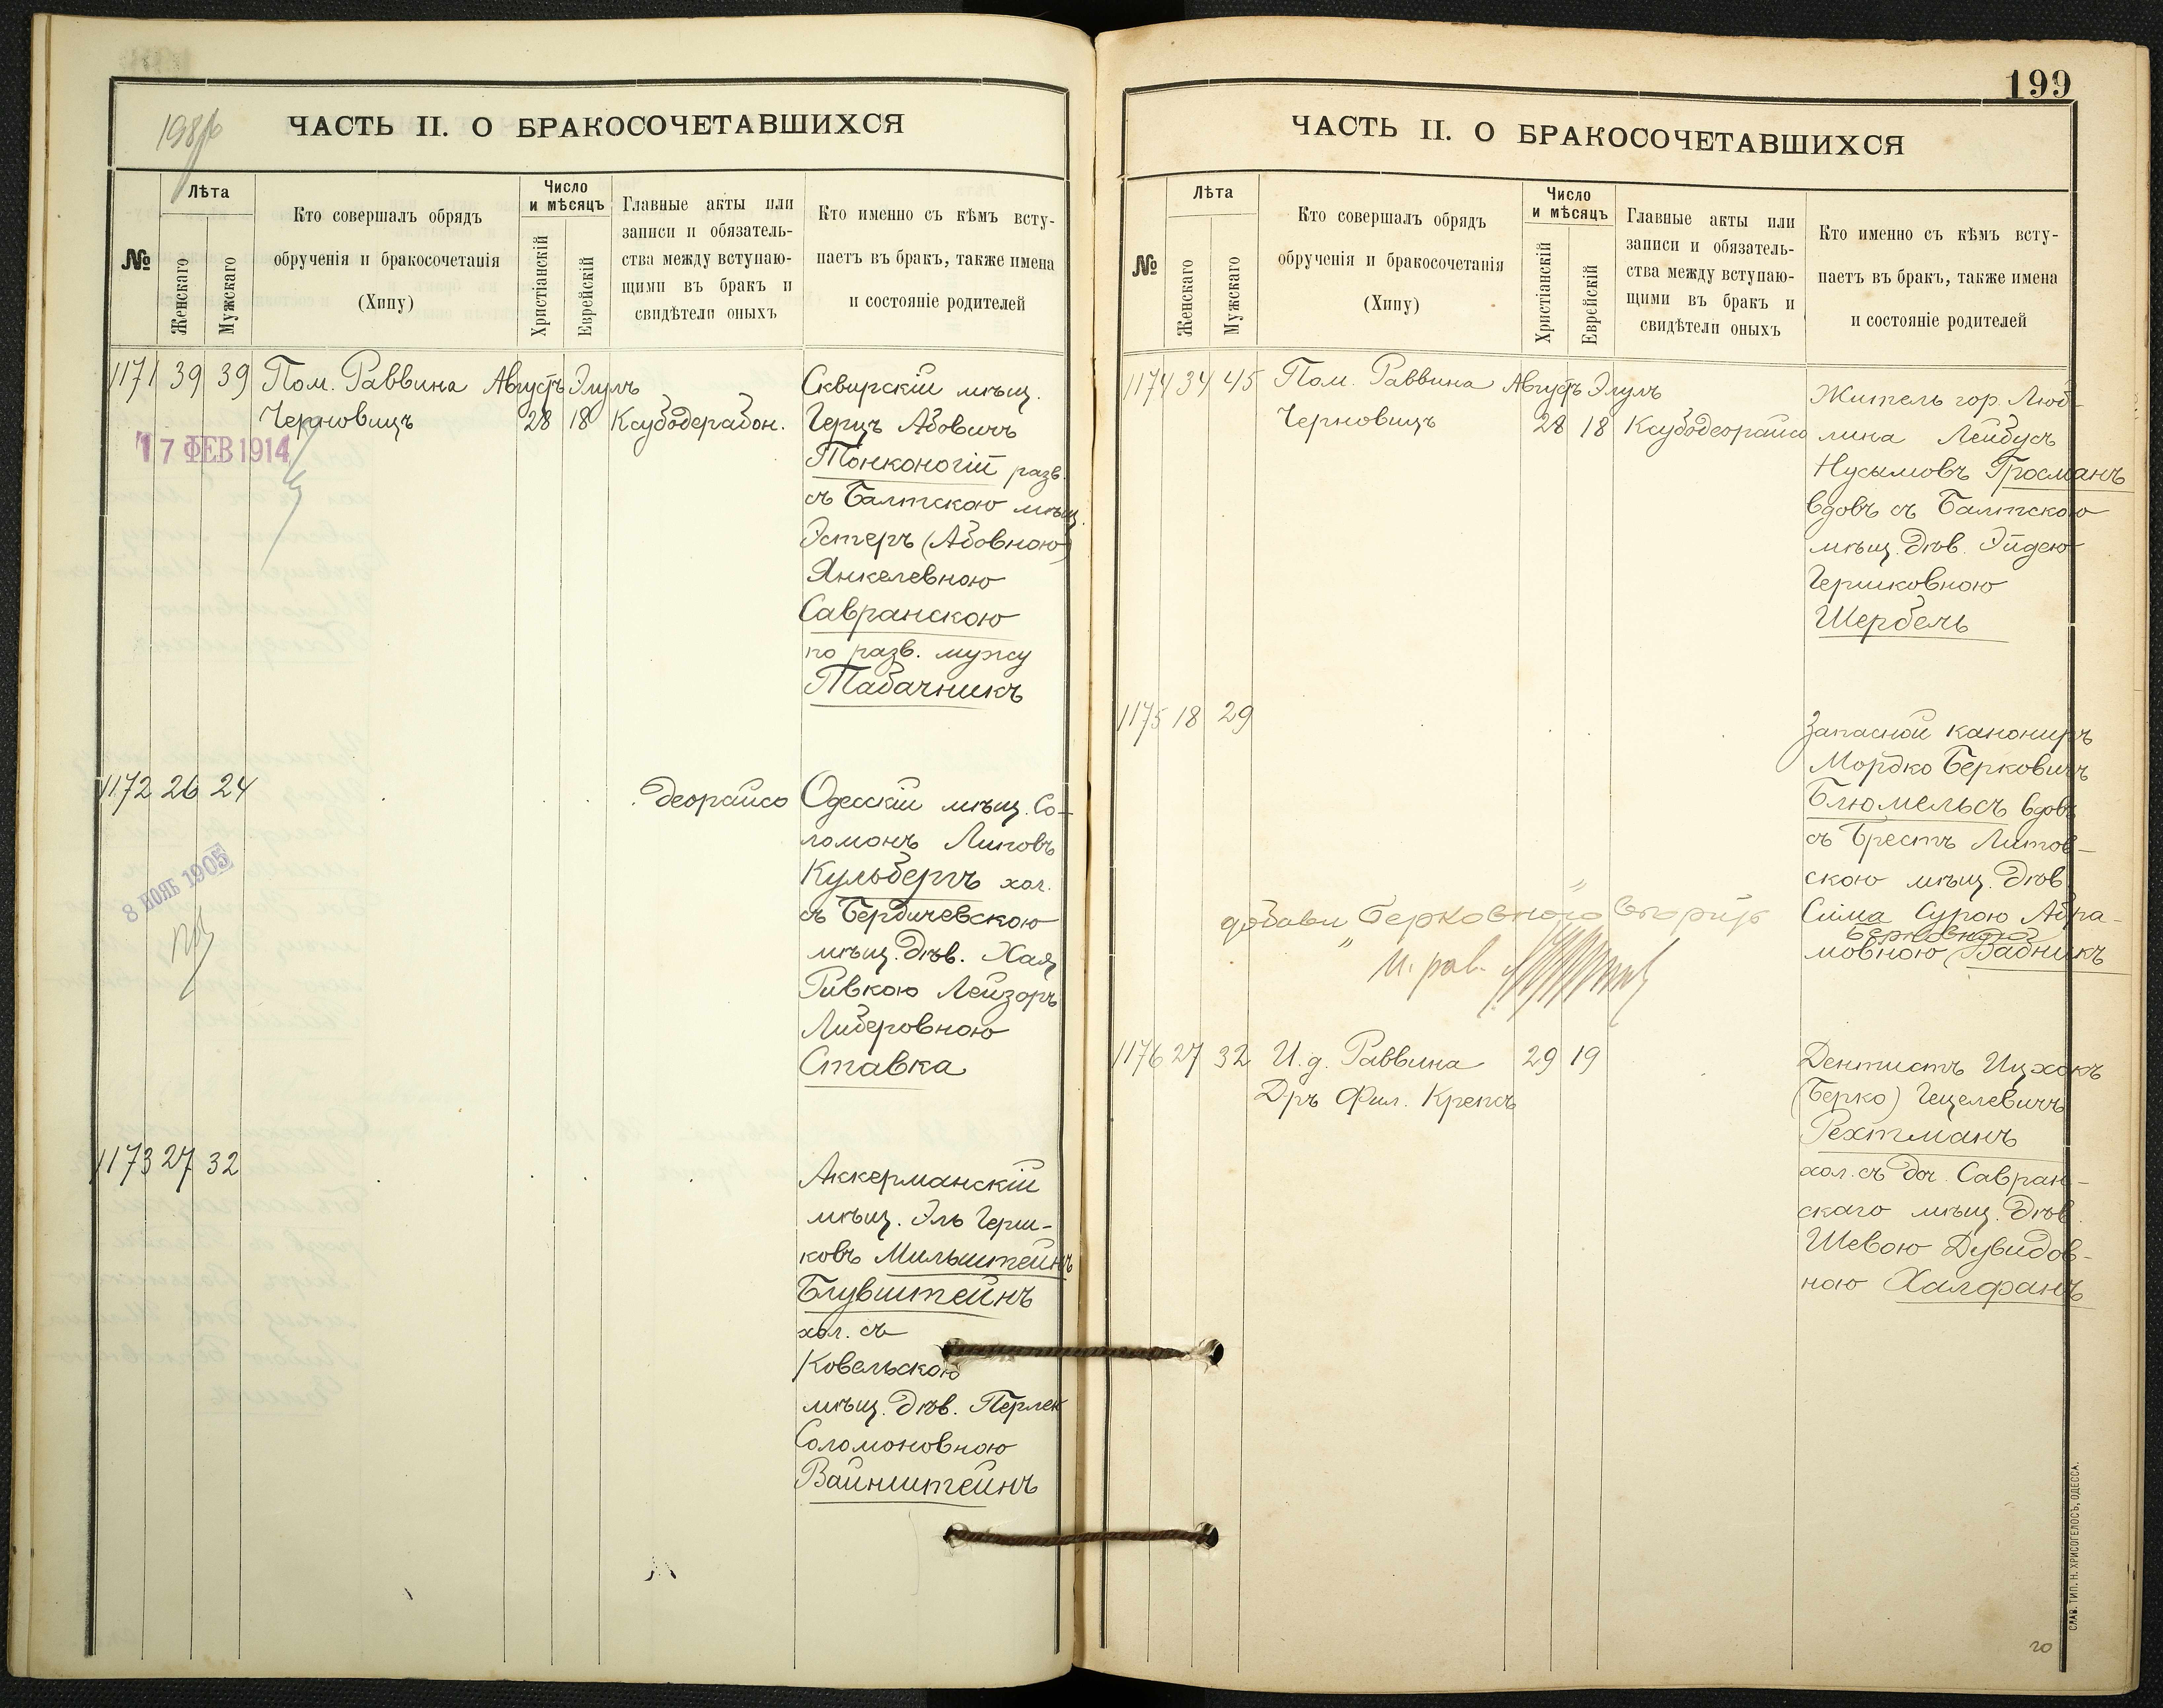 ЧАСТЬ II. О БРАКОСОЧЕТАВШИХСЯ
№
Лѣта
Женскаго
Мужскаго
Кто совершалъ обрядъ
обрученія и бракосочетанія
(Хипу)
Число
и мѣсяцъ
Христіанскій
Еврейскій
Главные акты или
записи и обязатель-
ства между вступаю-
щими въ бракъ и
свидѣтели оныхъ
Кто именно съ кѣмъ всту-
паетъ въ бракъ, также имена
и состояніе родителей
1171 39 39 Пом. Раввина Августъ Элулъ
Черновицъ 28 18 Ксубодерабон.
17 ФЕВ 1914
Сквирскій мѣщ.
Герцъ Абовичъ
Тонконогій разв.
съ Балтскою мѣщ.
Эстеръ (Абовною)
Янкелевною
Савранскою
по разв. мужу
Табачникъ
1172 26 24 деорайсо
8 НОЯБ 1905
Одесскій мѣщ. Со-
ломонъ Липовъ
Кульбергъ хол.
съ Бердичевскою
мѣщ. дѣв. Хая
Ривкою Лейзоръ
Либеровною
Ставка
1173 27 32
Аккерманскій
мѣщ. Эль Герш-
ковъ Мильштейнъ
Блувштейнъ
хол. съ
Ковельскою
мѣщ. дѣв. Перлею
Соломоновною
Вайнштейнъ
199
ЧАСТЬ II. О БРАКОСОЧЕТАВШИХСЯ
№
Лѣта
Женскаго
Мужскаго
Кто совершалъ обрядъ
обрученія и бракосочетанія
(Хипу)
Число
и мѣсяцъ
Христіанскій
Еврейскій
Главные акты или
записи и обязатель-
ства между вступаю-
щими въ бракъ и
свидѣтели оныхъ
Кто именно съ кѣмъ всту-
паетъ въ бракъ, также имена
и состояніе родителей
1174 34 45 Пом. Раввина Августъ Элулъ
Черновицъ 28 18 Ксубодеорайсо
Житель гор. Люб-
лина Лейбусь
Нусымовъ Гросманъ
вдовъ съ Балтскою
мѣщ. дѣв. Эйдею
Гершковною
Шербель
1175 18 29
Запасной канониръ
Мордко Берковичъ
Блюмельсъ вдовъ
съ Брестъ Литов-
скою мѣщ. дѣв.
Сима Сурою Абра-
Берковною
мовною Вадникъ
добавл "Берковною"
И. рав.
1176 27 32 И. д. Раввина 29 19
Д-ръ Фил. Крепсъ
Дентистъ Ицхокъ
(Берко) Гецелевичъ
Рехтманъ
хол. съ доч. Савран-
скаго мѣщ. дѣв.
Шевою Дувидов-
ною Халфанъ
СЛАВ. ТИП. Н. ХРИСОГЕЛОСЪ, ОДЕССА.
20